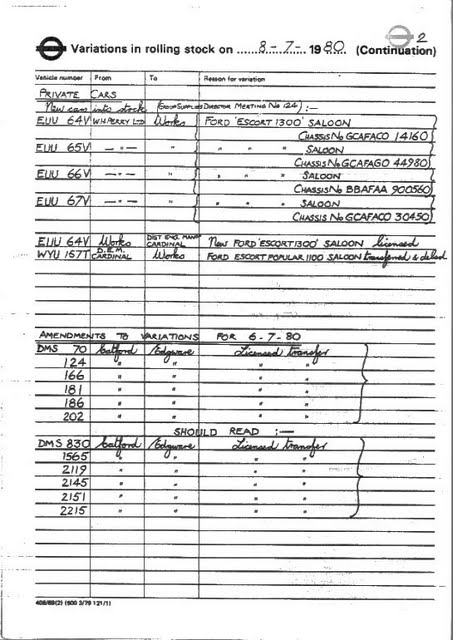 2
Variations in rolling stock on ......8-7-..... 1980. (Continuation)
Vehicle number From To Reason for variation
PRIVATE CARS
New cars into stock (GROUP SUPPLIES DIRECTOR MEETING No 124) :-
EUU 64V W.H.PERRY LTD Works FORD 'ESCORT 1300' SALOON
CHASSIS No GCAFAG 14160
EUU 65V —"— " " " " SALOON
CHASSIS No GCAFAGO 44980
EUU 66V —"— " " " " SALOON
CHASSIS No BBAFAA 900560
EUU 67V —"— " " " " SALOON
CHASSIS No GCAFACO 30450
EUU 64V Works DIST ENG. MANR CARDINAL New FORD 'ESCORT 1300' SALOON licensed
WYU 157T D.E.M. CARDINAL Works FORD ESCORT POPULAR 1100 SALOON transferred & delicd
AMENDMENTS TO VARIATIONS FOR 6-7-80
DMS 70 Catford Edgware Licensed transfer
124 " " " "
166 " " " "
181 " " " "
186 " " " "
202 " " " "
SHOULD READ :-
DMS 830 Catford Edgware Licensed transfer
1565 " " " "
2119 " " " "
2145 " " " "
2151 " " " "
2215 " " " "
408/69(2) (500 3/79 121/1)